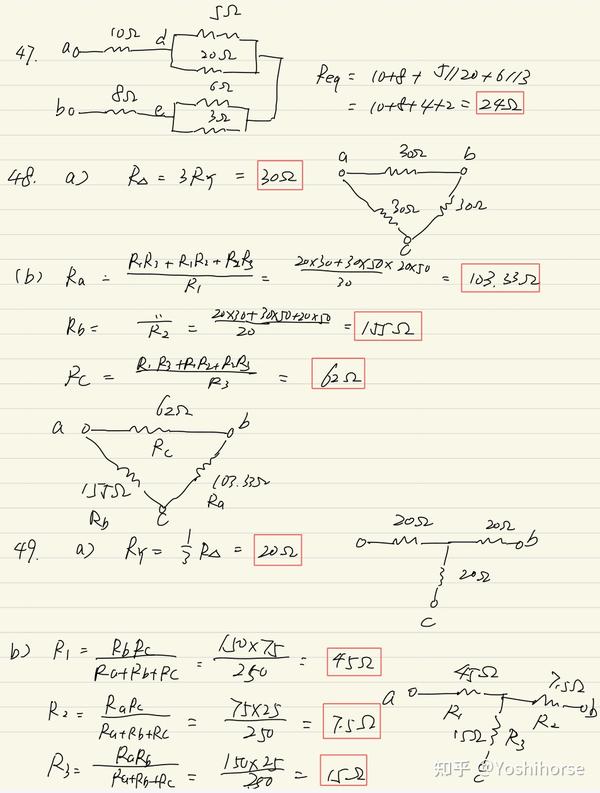 47.
a 10Ω d 5Ω
20Ω
6Ω
b 8Ω e 3Ω
Req = 10+8 + 5//20 + 6//3
= 10+8+4+2 = 24Ω
48. a) RΔ = 3RY = 30Ω
a 30Ω b
30Ω 30Ω
c
(b) Ra = R1R3 + R1R2 + R2R3 / R1 = 20×30+30×50×20×50 / 30 = 103.33Ω
Rb = " / R2 = 20×30+30×50+20×50 / 20 = 155Ω
Rc = R1R3+R1R2+R2R3 / R3 = 62Ω
62Ω
a b
Rc
155Ω 103.33Ω
Rb Ra
c
49. a) RY = 1/3 RΔ = 20Ω
20Ω 20Ω b
20Ω
c
b) R1 = RbRc / Ra+Rb+Rc = 150×75 / 250 = 45Ω
R2 = RaRc / Ra+Rb+Rc = 75×25 / 250 = 7.5Ω
R3 = RaRb / Ra+Rb+Rc = 150×25 / 250 = 15Ω
45Ω 7.5Ω
a b
R1 R2
15Ω R3
c
知乎 @Yoshihorse